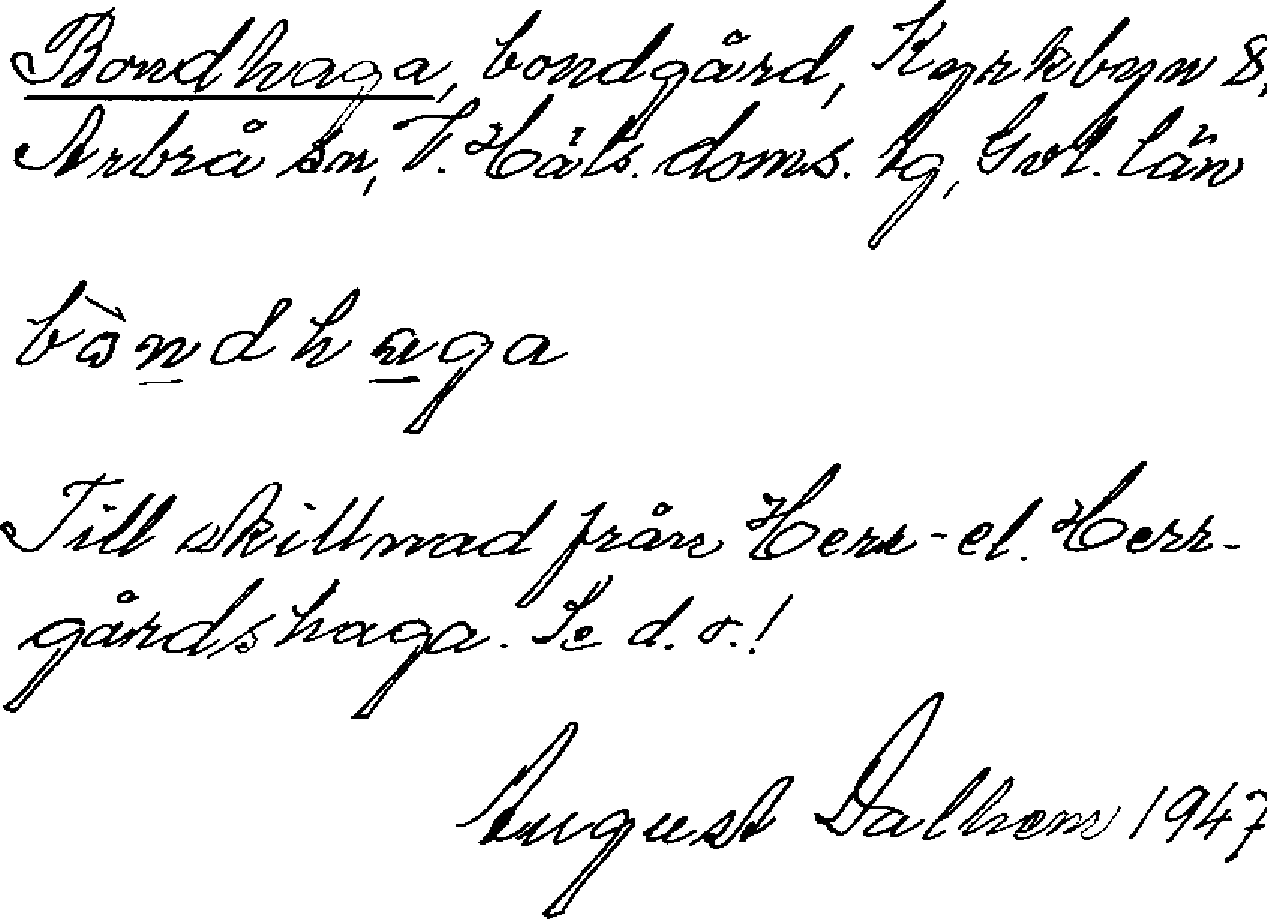 Bondhaga, bondgård, Kyrkbyn 8,
Arbrå sn, V. Häls. doms. tg, Gvl. län
bòndhaga
Till skillnad från Herr- el. Herr-
gårdshaga. Se d. o.!
August Dalhem 1947